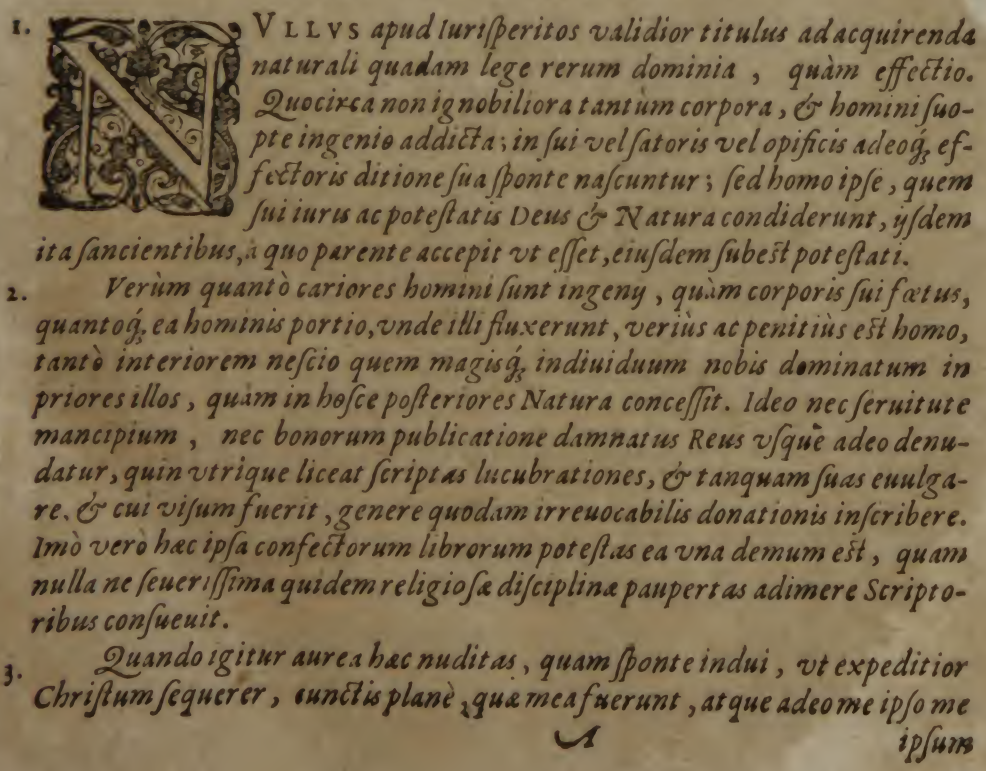 1. NVLLVS apud Iuriſperitos validior titulus ad acquirenda
naturali quadam lege rerum dominia , quàm effectio.
Quocirca non ignobiliora tantùm corpora, & homini ſuo-
pte ingenio addicta; in ſui vel ſatoris vel opificis adeoq́; ef-
fectoris ditione ſua ſponte naſcuntur; ſed homo ipſe, quem
ſui iuris ac poteſtatis Deus & Natura condiderunt, ijſdem
ita ſancientibus, à quo parente accepit vt eſſet, eiuſdem ſubeſt poteſtati.
2. Verùm quantò cariores homini ſunt ingenij , quàm corporis ſui fœtus,
quantoq́; ea hominis portio, vnde illi fluxerunt , veriùs ac penitiùs eſt homo,
tantò interiorem neſcio quem magisq́; indiuiduum nobis dominatum in
priores illos , quàm in hoſce poſteriores Natura conceſſit. Ideo nec ſeruitute
mancipium , nec bonorum publicatione damnatus Reus vſque adeo denu-
datur, quin vtrique liceat ſcriptas lucubrationes, & tanquam ſuas euulga-
re, & cui viſum fuerit , genere quodam irreuocabilis donationis inſcribere.
Imò verò hæc ipſa confectorum librorum poteſtas ea vna demum eſt , quam
nulla ne ſeueriſſima quidem religioſæ diſciplinæ paupertas adimere Scripto-
ribus conſueuit.
3. Quando igitur aurea hæc nuditas , quam ſponte indui , vt expeditior
Chriſtum ſequerer , cunctis planè , quæ mea fuerunt , atque adeo me ipſo me
A ipſum